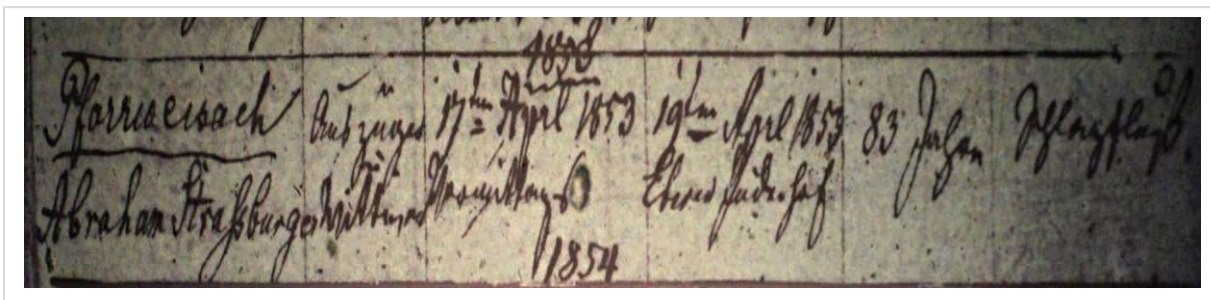 1853
Pfarrweisach Auszüger 17ten April 1853 19ten April 1853 83 Jahre Schlagfluß.
Abraham Straßburger Wittwer Vormittags Ebern Judenhof
1854